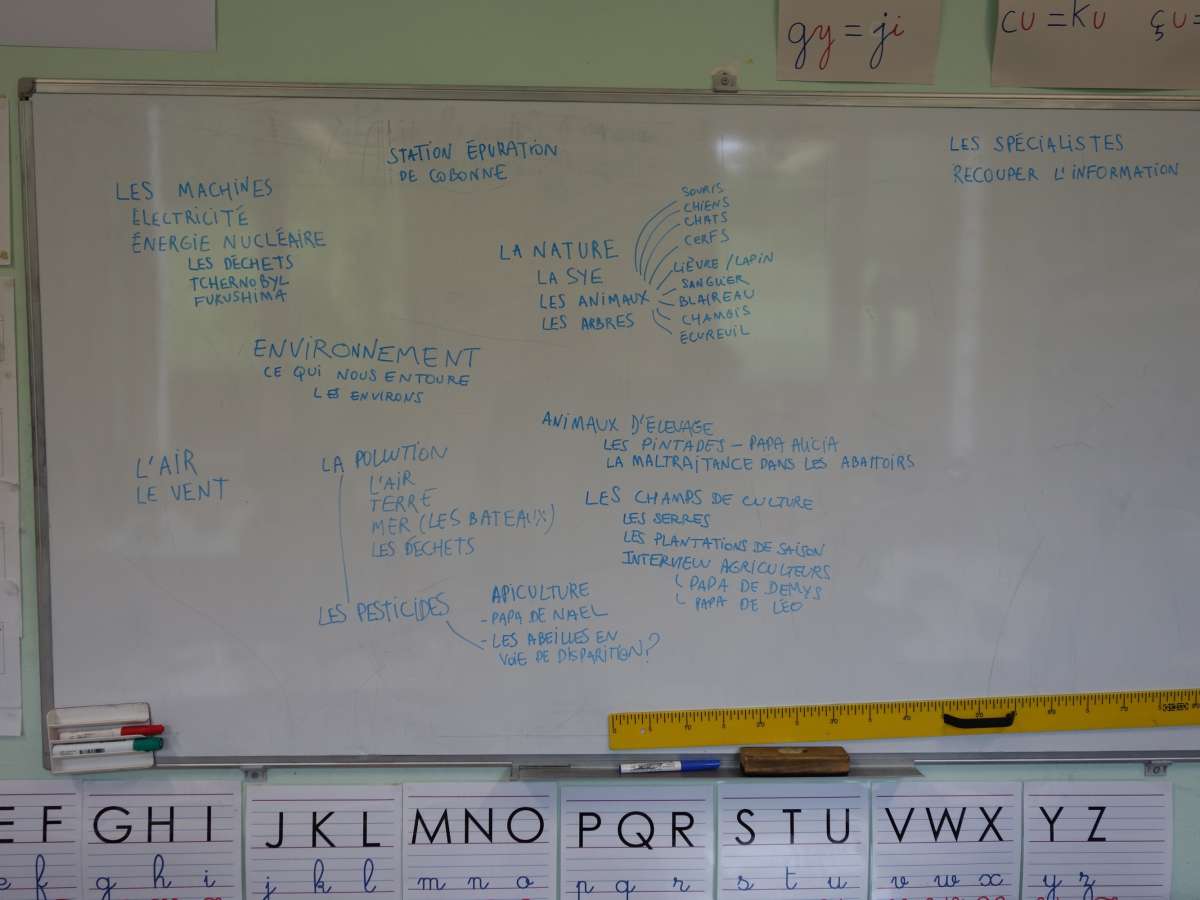 gy = ji
cu = ku
çu =
STATION ÉPURATION
DE COBONNE
LES SPÉCIALISTES
RECOUPER L'INFORMATION
LES MACHINES
ELECTRICITÉ
ÉNERGIE NUCLÉAIRE
LES DÉCHETS
TCHERNOBYL
FUKUSHIMA
LA NATURE
LA SYE
LES ANIMAUX
LES ARBRES
SOURIS
CHIENS
CHATS
CERFS
LIÈVRE / LAPIN
SANGLIER
BLAIREAU
CHAMOIS
ÉCUREUIL
ENVIRONNEMENT
CE QUI NOUS ENTOURE
LES ENVIRONS
ANIMAUX D'ÉLEVAGE
LES PINTADES - PAPA ALICIA
LA MALTRAITANCE DANS LES ABATTOIRS
L'AIR
LE VENT
LA POLLUTION
L'AIR
TERRE
MER (LES BATEAUX)
LES DÉCHETS
LES PESTICIDES
LES CHAMPS DE CULTURE
LES SERRES
LES PLANTATIONS DE SAISON
INTERVIEW AGRICULTEURS
PAPA DE DEMYS
PAPA DE LÉO
APICULTURE
- PAPA DE NAEL
- LES ABEILLES EN
VOIE DE DISPARITION?
E F G H I J K L M N O P Q R S T U V W X Y Z
e f g h i j k l m n o p q r s t u v w x y z